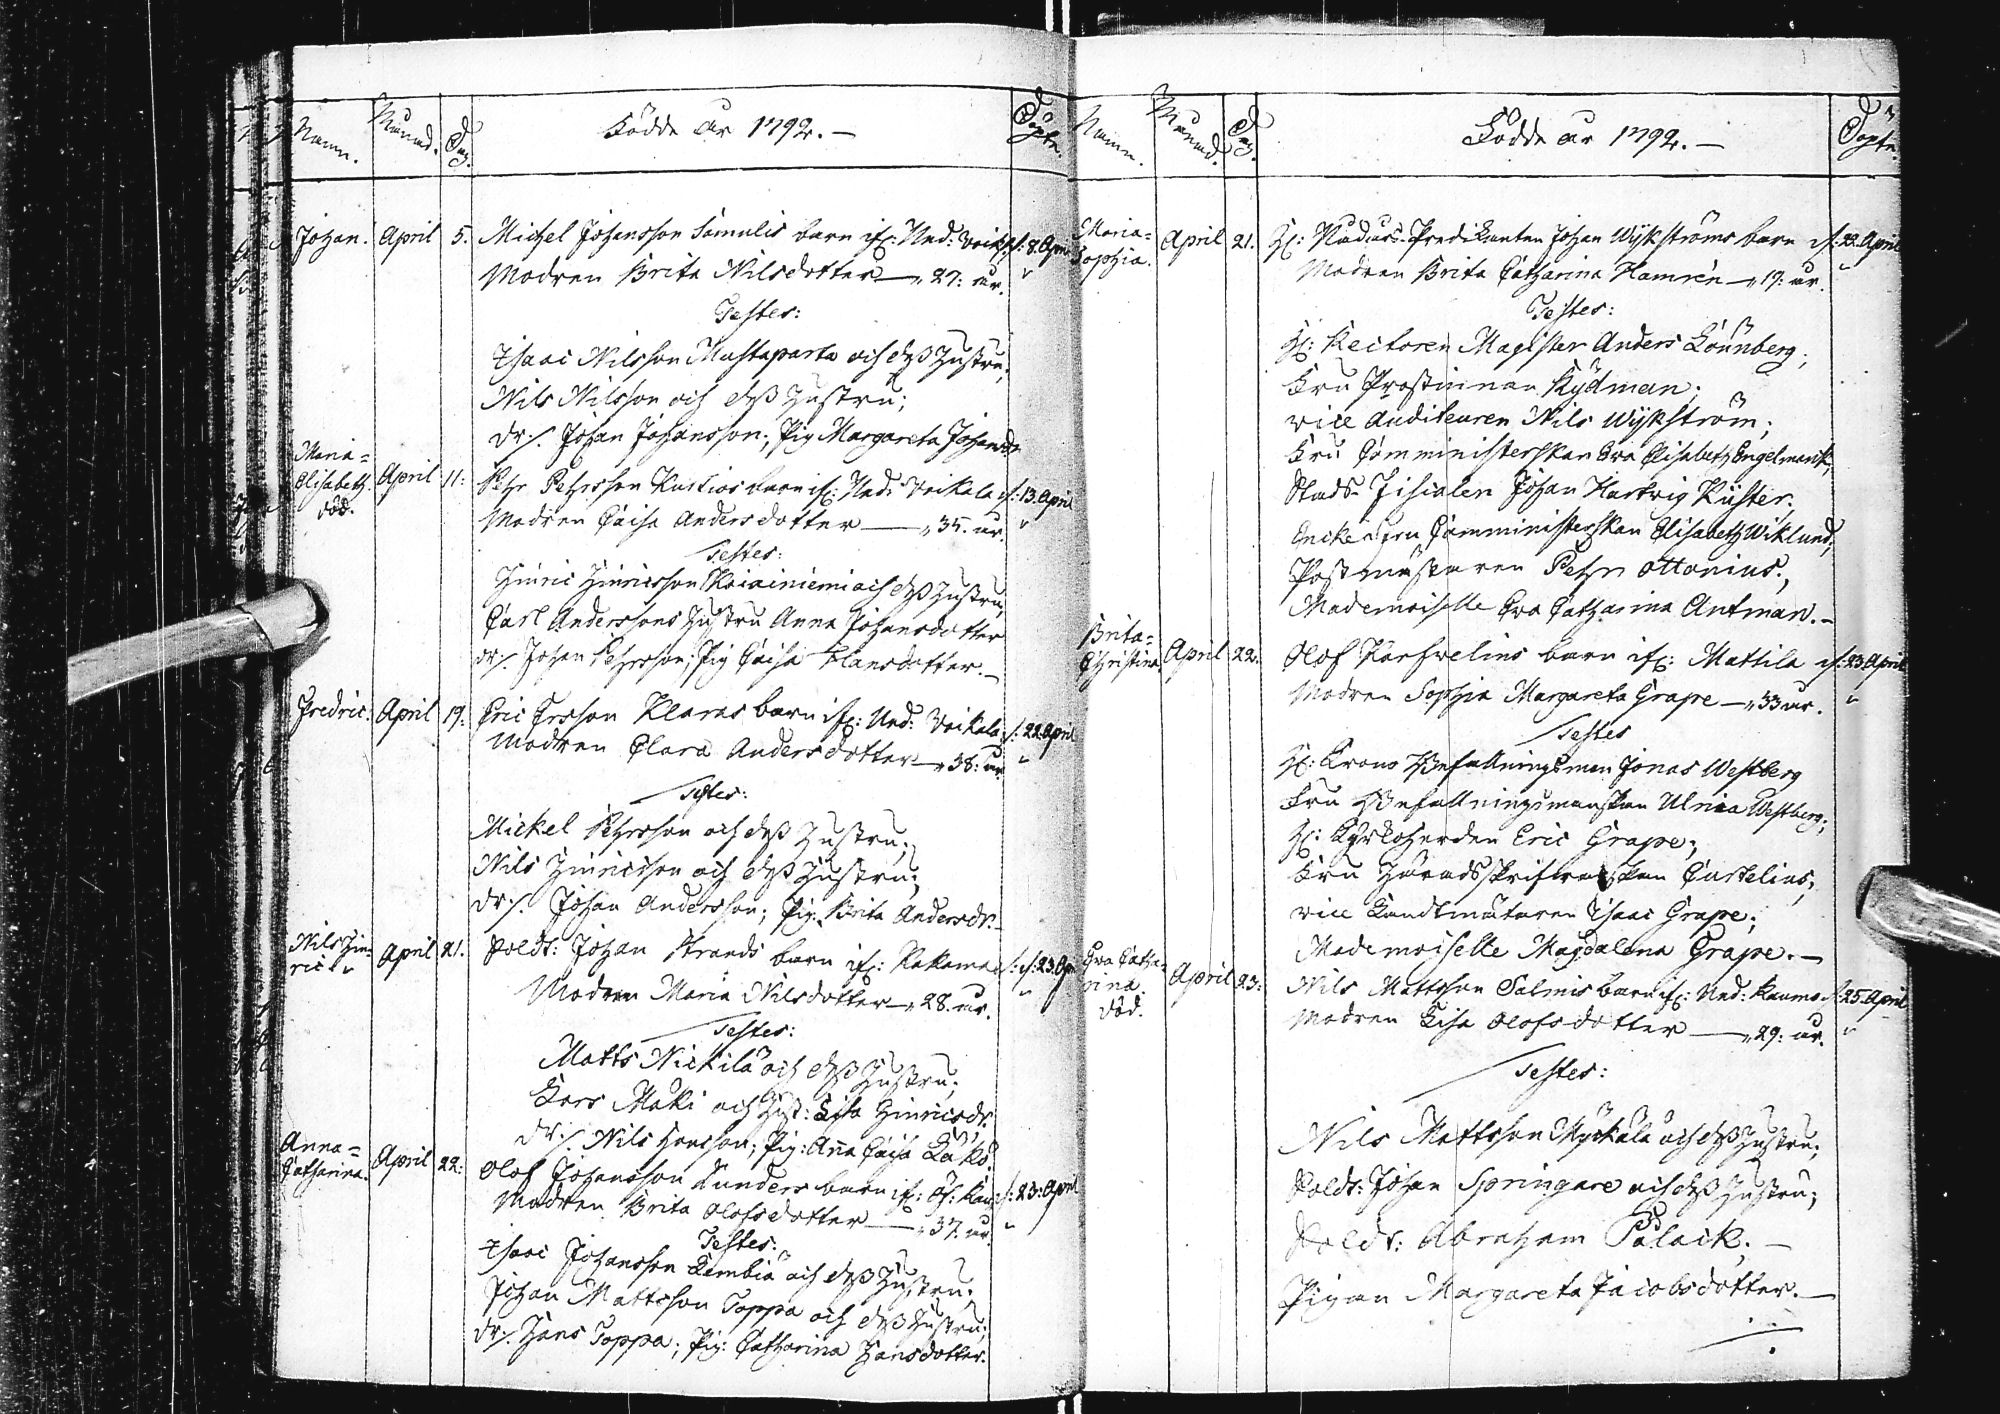 Namn.
Månad.
Dag.
Födde år 1792.—
Döpte.
Johan. April 5. Michel Johansson Samulis barn if: Ned: Voik. d: 8. Apr
Modren Brita Nilsdotter — „ 27: år.
Testes:
Isaac Nilsson Mustaparta och deß hustru,
Nils Nilsson och deß hustru;
dr:. Johan Johansson; Pig Margareta Johansdr
Maria=
Elisabeth. April 11: Pehr Pehrsson Kurtios barn if: Ned: Voikala d: 13. April
död.
Modren Caisa Andersdotter — „ 35. år.
Testes:
Hinric Hinricsson Koiainiemi och deß hustru,
Carl Anderssons hustru Anna Johansdotter
dr:. Johan Pehrsson; Pig Caisa Hansdotter.—
Fredric. April 19: Eric Ersson Klaras barn if: Ned: Voikala d: 22 April
Modren Clara Andersdotter — „ 38: år
Testes:
Mickel Pehrsson och deß hustru;
Nils Hinricsson och deß hustru;
dr:. Johan Andersson; Pig: Brita Andersdr.—
Nils Hin=
ric April 21. Soldt: Johan Strands barn if: Kakama d: 23. Apr
Modren Maria Nilsdotter — „ 28. år.
Testes:
Matts Nickilä och deß hustru;
Lars Mäki och hust: Lisa Hinricsdr.
dr:. Nils Hansson; Pig: Anna Caisa Läkö.
Anna=
Catharina. April 22: Olof Johansson Lunders barn if: Öf: Kau d: 23: April
Modren Brita Olofsdotter — „ 37. år.
Testes:
Isaac Johansson Kembiä och deß hustru;
Johan Mattsson Toppa och deß hustru;
dr:. Hans Toppa; Pig: Catharina Hansdotter.
Namn.
Månad.
Dag.
Födde år 1792.—
Döpte.
Maria=
Sophia. April 21. H: Nådårs-Predikanten Johan Wykströms barn d: 22. April
Modren Brita Catharina Hamrén — „ 19: år.
Testes:
H: Rectoren Magister Anders Lönnberg;
Fru Prostinnan Rydman;
vice Auditeuren Nils Wykström;
Fru Comministerskan Eva Elisabeth Engelmark,
Stads-Fiscalen Johan Hartvig Küster;
Enke fru Comministerskan Elisabeth Wiklund;
Postmästaren Pehr Ottonius;
Mademoiselle Eva Catharina Antman.—
Brita=
Christina April 22. Olof Karfvelins barn if: Mattila d: 23. April
Modren Sophia Margareta Grape — „ 33 år.
Testes
H: Krono Befallningsman Jonas Westberg
Fru Befallningsmanskan Ulrica Westberg;
H: Kyrkoherden Eric Grape;
Fru Häradsskrifverskan Curtelius;
vice Landtmätaren Isaac Grape;
Mademoiselle Magdalena Grape.—
Eva Catha=
rina. April 23: Nils Mattsson Salmis barn if: Ned: Kaumo d: 25. April
död.
Modren Lisa Olofsdotter — „ 29: år.
Testes:
Nils Mattsson Myckälä och deß hustru;
Soldt: Johan Springare och deß hustru;
Soldt: Abraham Palack;—
Pigan Margareta Jacobsdotter.—